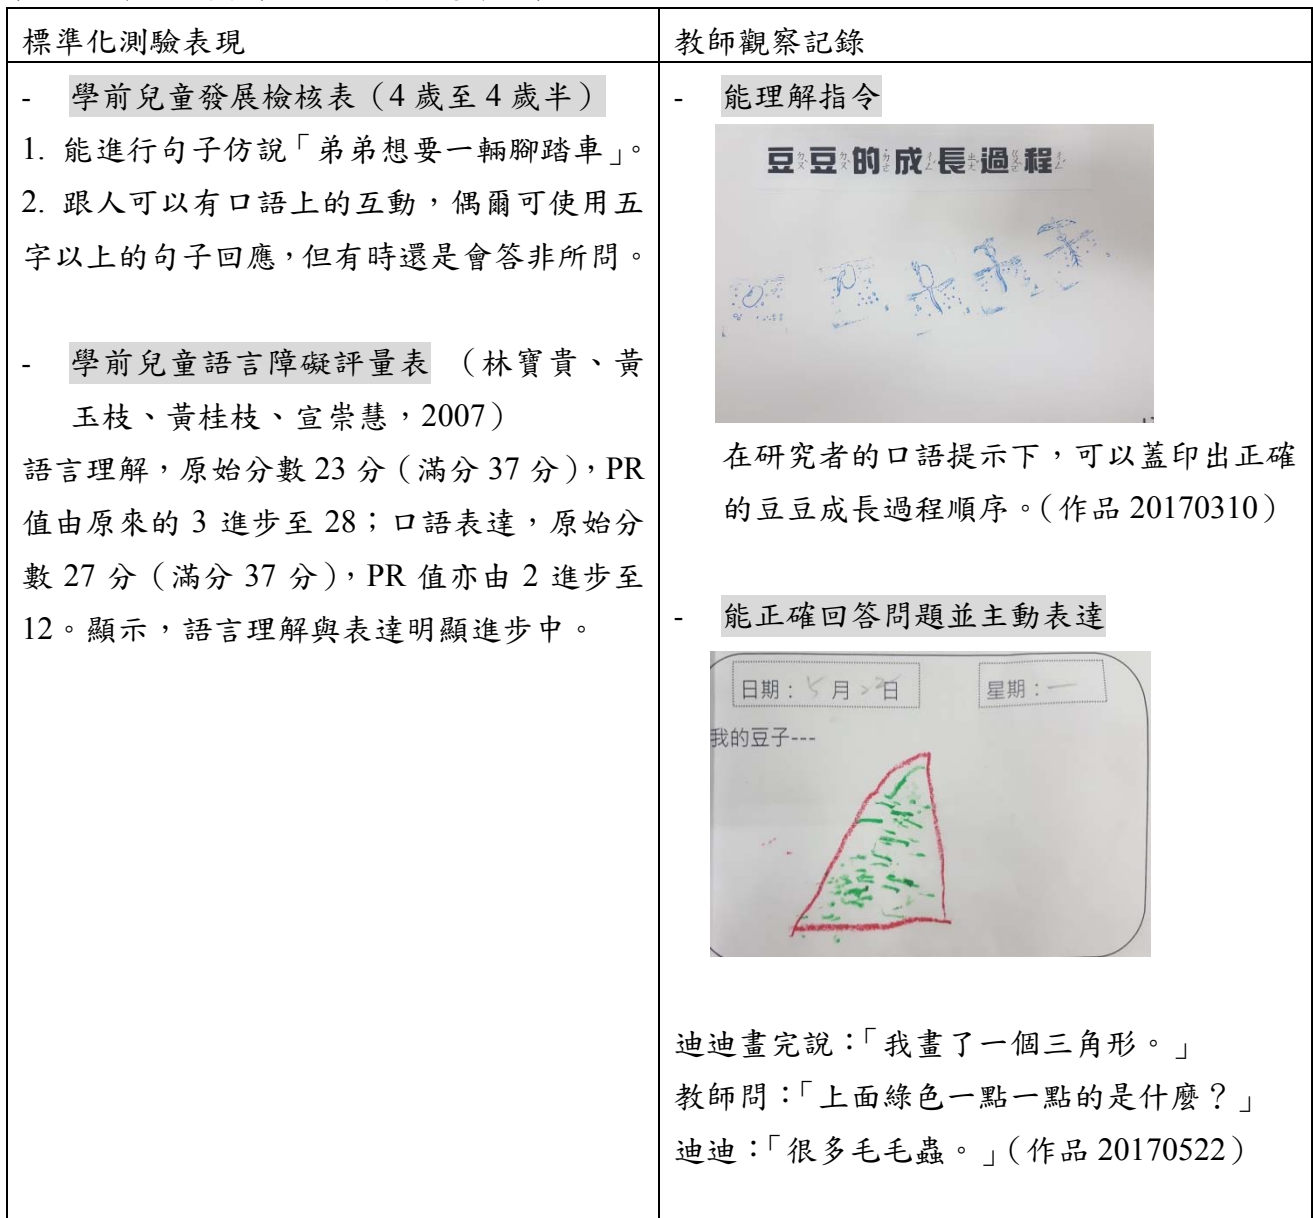 標準化測驗表現
- 學前兒童發展檢核表（4 歲至 4 歲半）
1. 能進行句子仿說「弟弟想要一輛腳踏車」。
2. 跟人可以有口語上的互動，偶爾可使用五
字以上的句子回應，但有時還是會答非所問。
- 學前兒童語言障礙評量表 （林寶貴、黃
玉枝、黃桂枝、宣崇慧，2007）
語言理解，原始分數 23 分（滿分 37 分），PR
值由原來的 3 進步至 28；口語表達，原始分
數 27 分（滿分 37 分），PR 值亦由 2 進步至
12。顯示，語言理解與表達明顯進步中。
教師觀察記錄
- 能理解指令
豆豆的成長過程
在研究者的口語提示下，可以蓋印出正確
的豆豆成長過程順序。（作品 20170310）
- 能正確回答問題並主動表達
日期：5月22日 星期：一
我的豆子---
迪迪畫完說：「我畫了一個三角形。」
教師問：「上面綠色一點一點的是什麼？」
迪迪：「很多毛毛蟲。」（作品 20170522）